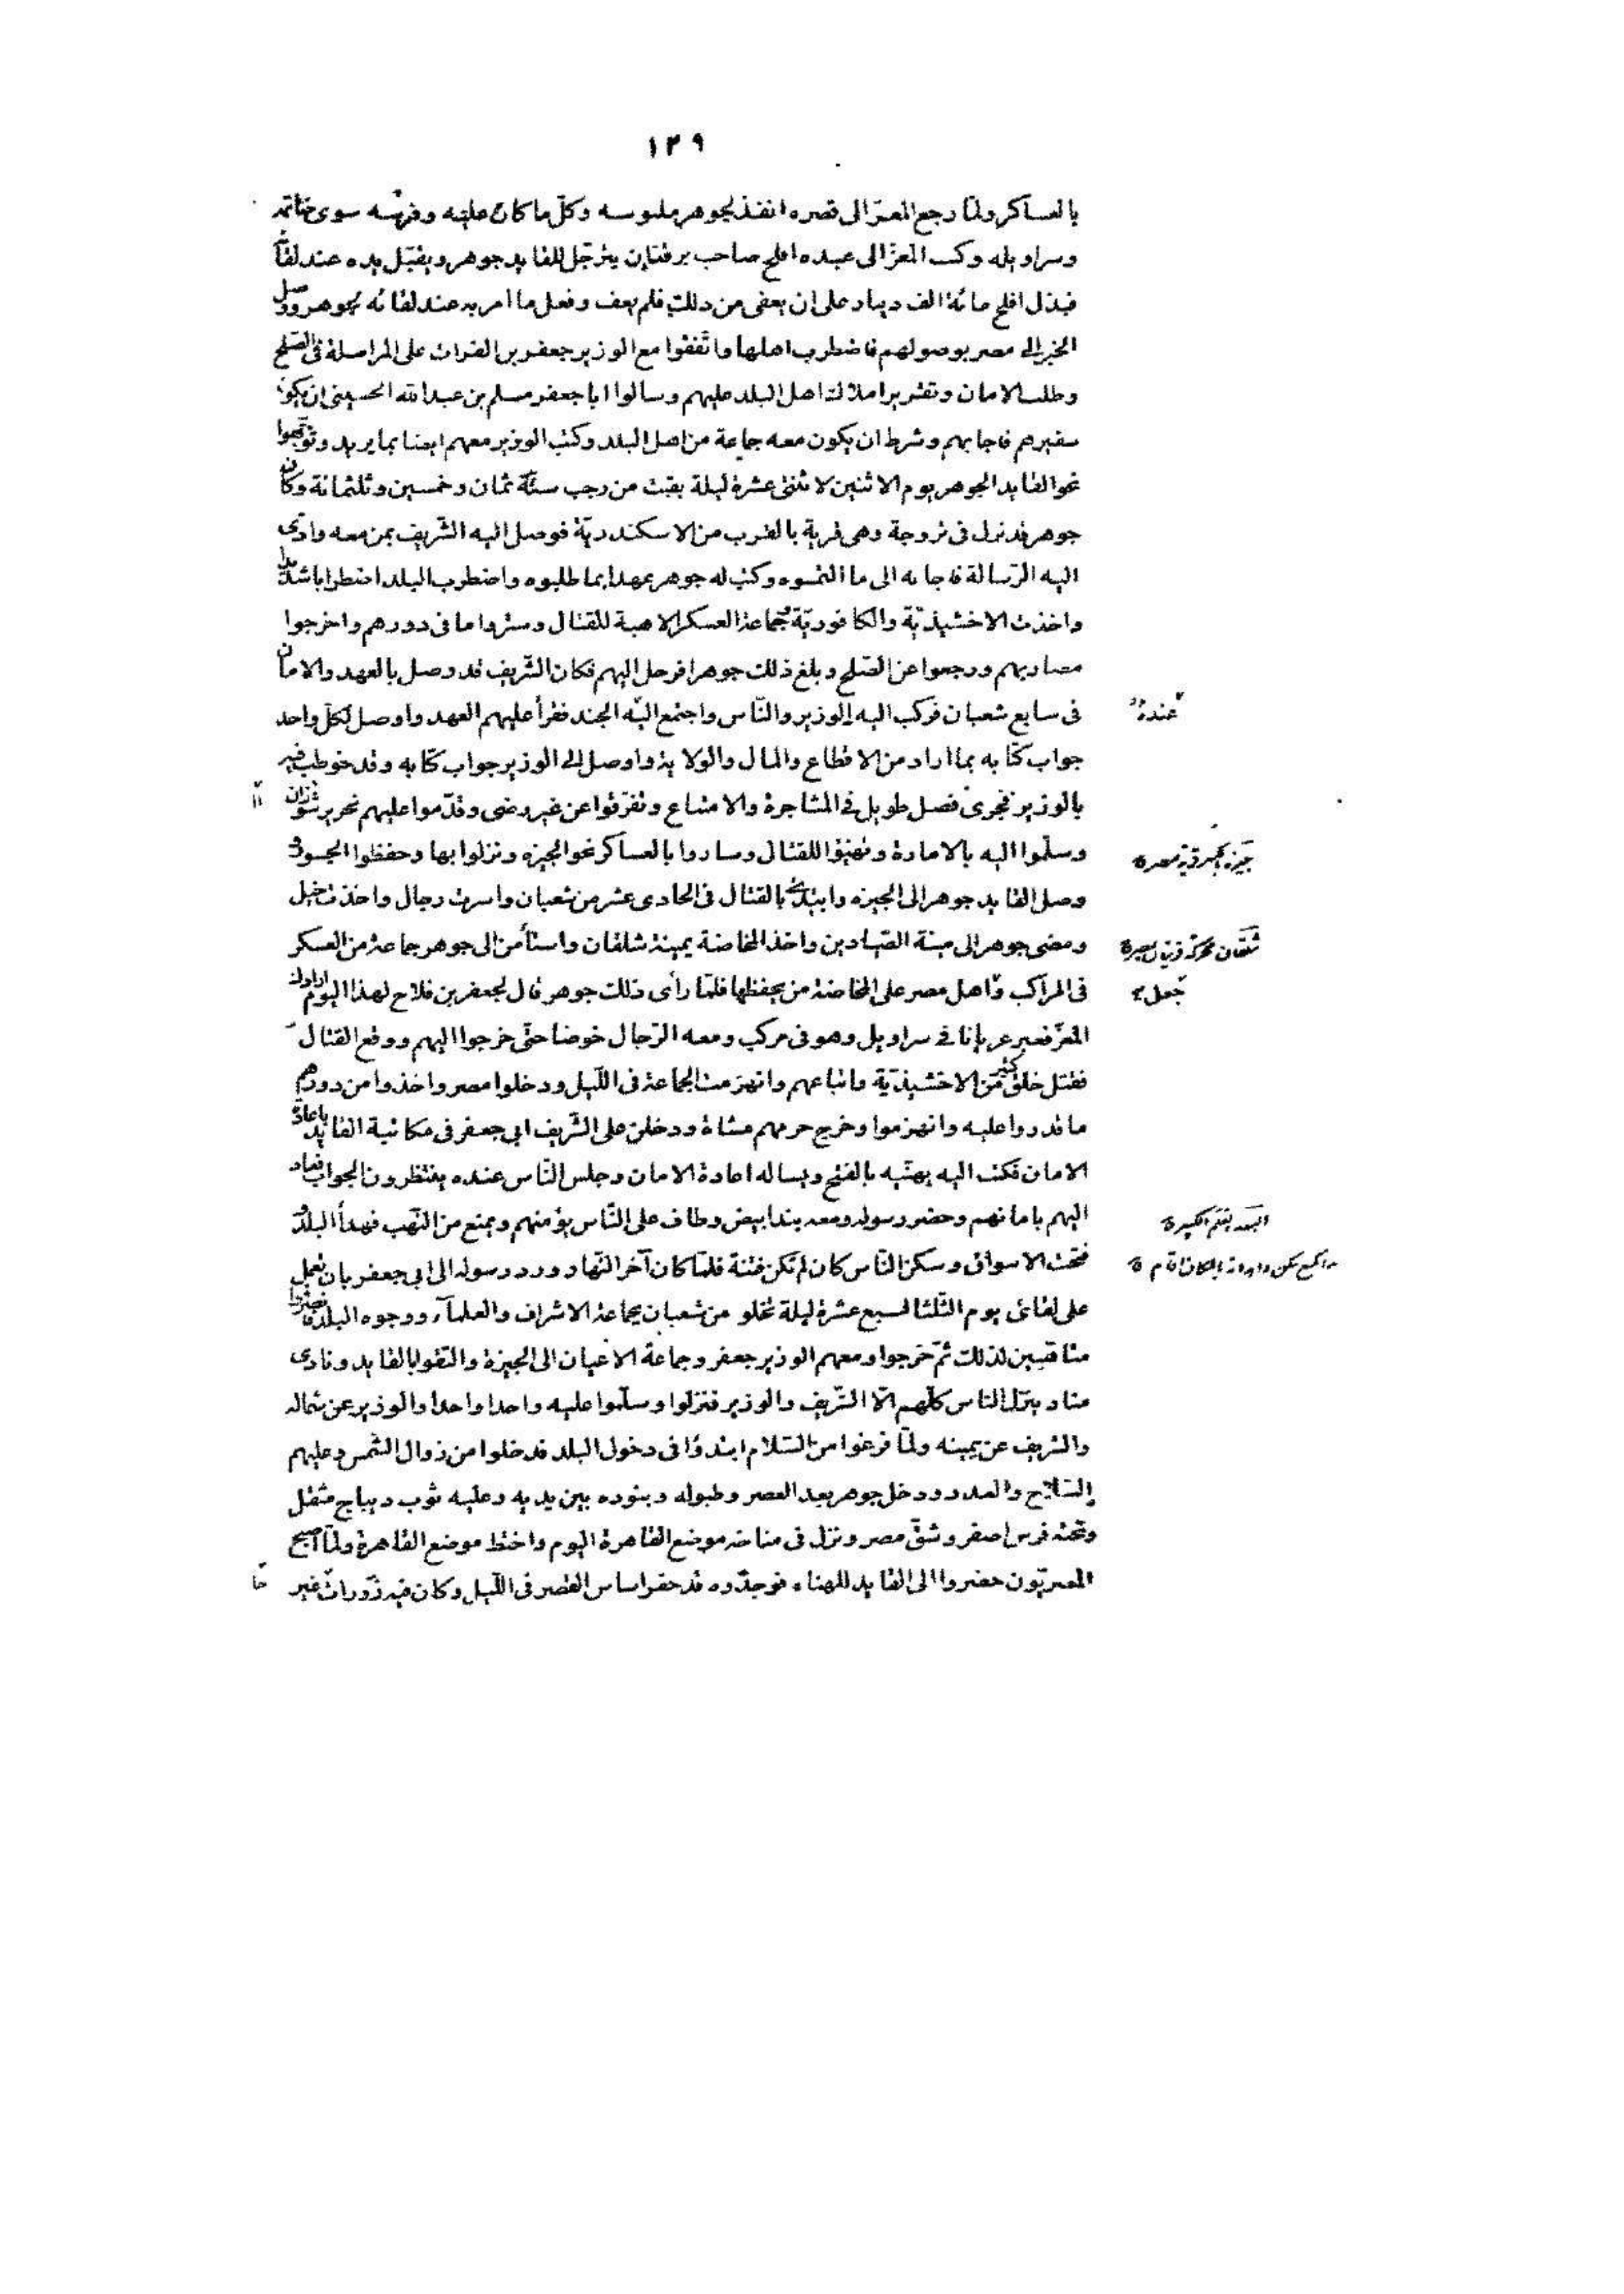 ١٣٩
بالعساكر ولمّا رجع المعزّ الى قصره انفذ لجوهر ملبوسه وكلّ ما كان عليه وفرشه سوى خاتمه
وسراويله وكتب المعزّ الى عبده افلح صاحب برقة ان يترجّل للقايد جوهر ويقبّل يده عند لقآئه
فبذل افلح مائة الف دينار على ان يعفى من ذلك فلم يعف وفعل ما امر به عند لقائه لجوهر ووصل
الخبر الى مصر بوصولهم فاضطرب اهلها واتّفقوا مع الوزير جعفر بن الفرات على المراسلة فى الصّلح
وطلب الامان وتقرير املاك اهل البلد عليهم وسالوا ابا جعفر مسلم بن عبدالله الحسينى ان يكون
سفيرهم فاجابهم وشرط ان يكون معه جماعة من اهل البلد وكتب الوزير معهم ايضا بما يريد وتوجّهوا
نحو القايد الجوهر يوم الاثنين لاثنتى عشرة ليلة بقيت من رجب سنة ثمان وخمسين وثلثمائة وكان
جوهر قد نزل فى تروجة وهى قرية بالقرب من الاسكندريّة فوصل اليه الشّريف بمن معه وادّى
اليه الرّسالة فاجابه الى ما التمسوه وكتب له جوهر عهدا بما طلبوه واضطرب البلد اضطرابا شديدا
واخذت الاخشيذيّة والكافوريّة وجماعة العسكر الاهبة للقتال وستروا ما فى دورهم واخرجوا
مضاربهم ورجعوا عن الصّلح وبلغ ذلك جوهرا فرحل اليهم فكان الشّريف قد وصل بالعهد والامان
فى سابع شعبان فركب اليه الوزير والنّاس واجتمع اليه الجند فقرأ عليهم العهد واوصل لكلّ واحد
عنده
جواب كتابه بما اراد من الاقطاع والمال والولاية واوصل الى الوزير جواب كتابه وقد خوطب فيه
بالوزير فجرى فصل طويل فى المشاجرة والامتناع وتفرّقوا عن غير رضى وقدّموا عليهم نحرير شوزان
وسلّموا اليه بالامارة وتهيّؤا للقتال وساروا بالعساكر نحو الجيزه ونزلوا بها وحفظوا الجسور و
وصل القايد جوهر الى الجيزه وابتدأ بالقتال فى الحادى عشر من شعبان واسرت رجال واخذت خيل
ومضى جوهر الى منية الصّيادين واخذ المخاضة بمينة شلقان واستأمن الى جوهر جماعة من العسكر
فى المراكب وّاهل مصر على المخاضة من يحفظها فلمّا رأى ذلك جوهر قال لجعفر بن فلاح لهذا اليوم ارادك
جعل
المعزّ فعبر عريانا فى سراويل وهو فى مركب ومعه الرّجال خوضا حتّى خرجوا اليهم ووقع القتال
فقتل خلق كثير من الاخشيذيّة واتباعهم وانهزمت الجماعة فى اللّيل ودخلوا مصر واخذوا من دورهم
ما قدروا عليه وانهزموا وخرج حرمهم مشاة ودخلن على الشّريف ابى جعفر فى مكاتبة القايد باعادة
الامان فكتب اليه يهنّيه بالفتح ويساله اعادة الامان وجلس النّاس عنده ينتظرون الجواب فعاد
اليهم بامانهم وحضر رسوله ومعه بند ابيض وطاف على النّاس يؤمنهم ويمنع من النّهب فهدأ البلد و
فتحت الاسواق وسكن النّاس كان لم تكن فتنة فلمّا كان آخر النّهار ورد رسوله الى ابى جعفر بان تعمل
على لقائى يوم الثّلثا لسبع عشرة ليلة تخلو من شعبان بجماعة الاشراف والعلمآء ووجوه البلد فانصرفوا
متاهّبين لذلك ثمّ خرجوا ومعهم الوزير جعفر وجماعة الاعيان الى الجيزة والتقوا بالقايد ونادى
مناد ينزل الناس كلّهم الّا الشّريف والوزير فنزلوا وسلّموا عليه واحدا واحدا والوزير عن شماله
والشريف عن يمينه ولمّا فرغوا من السّلام ابتدؤا فى دخول البلد فدخلوا من زوال الشّمس وعليهم
السّلاح والعدد ودخل جوهر بعد العصر وطبوله وبنوده بين يديه وعليه ثوب ديباج مثقل
وتحته فرس اصفر وشقّ مصر ونزل فى مناخه موضع القاهرة اليوم واختط موضع القاهرة ولمّا اصبح
المصريّون حضروا الى القايد للهناء فوجدّوه قد حفر اساس القصر فى اللّيل وكان فيه زوّرات غير